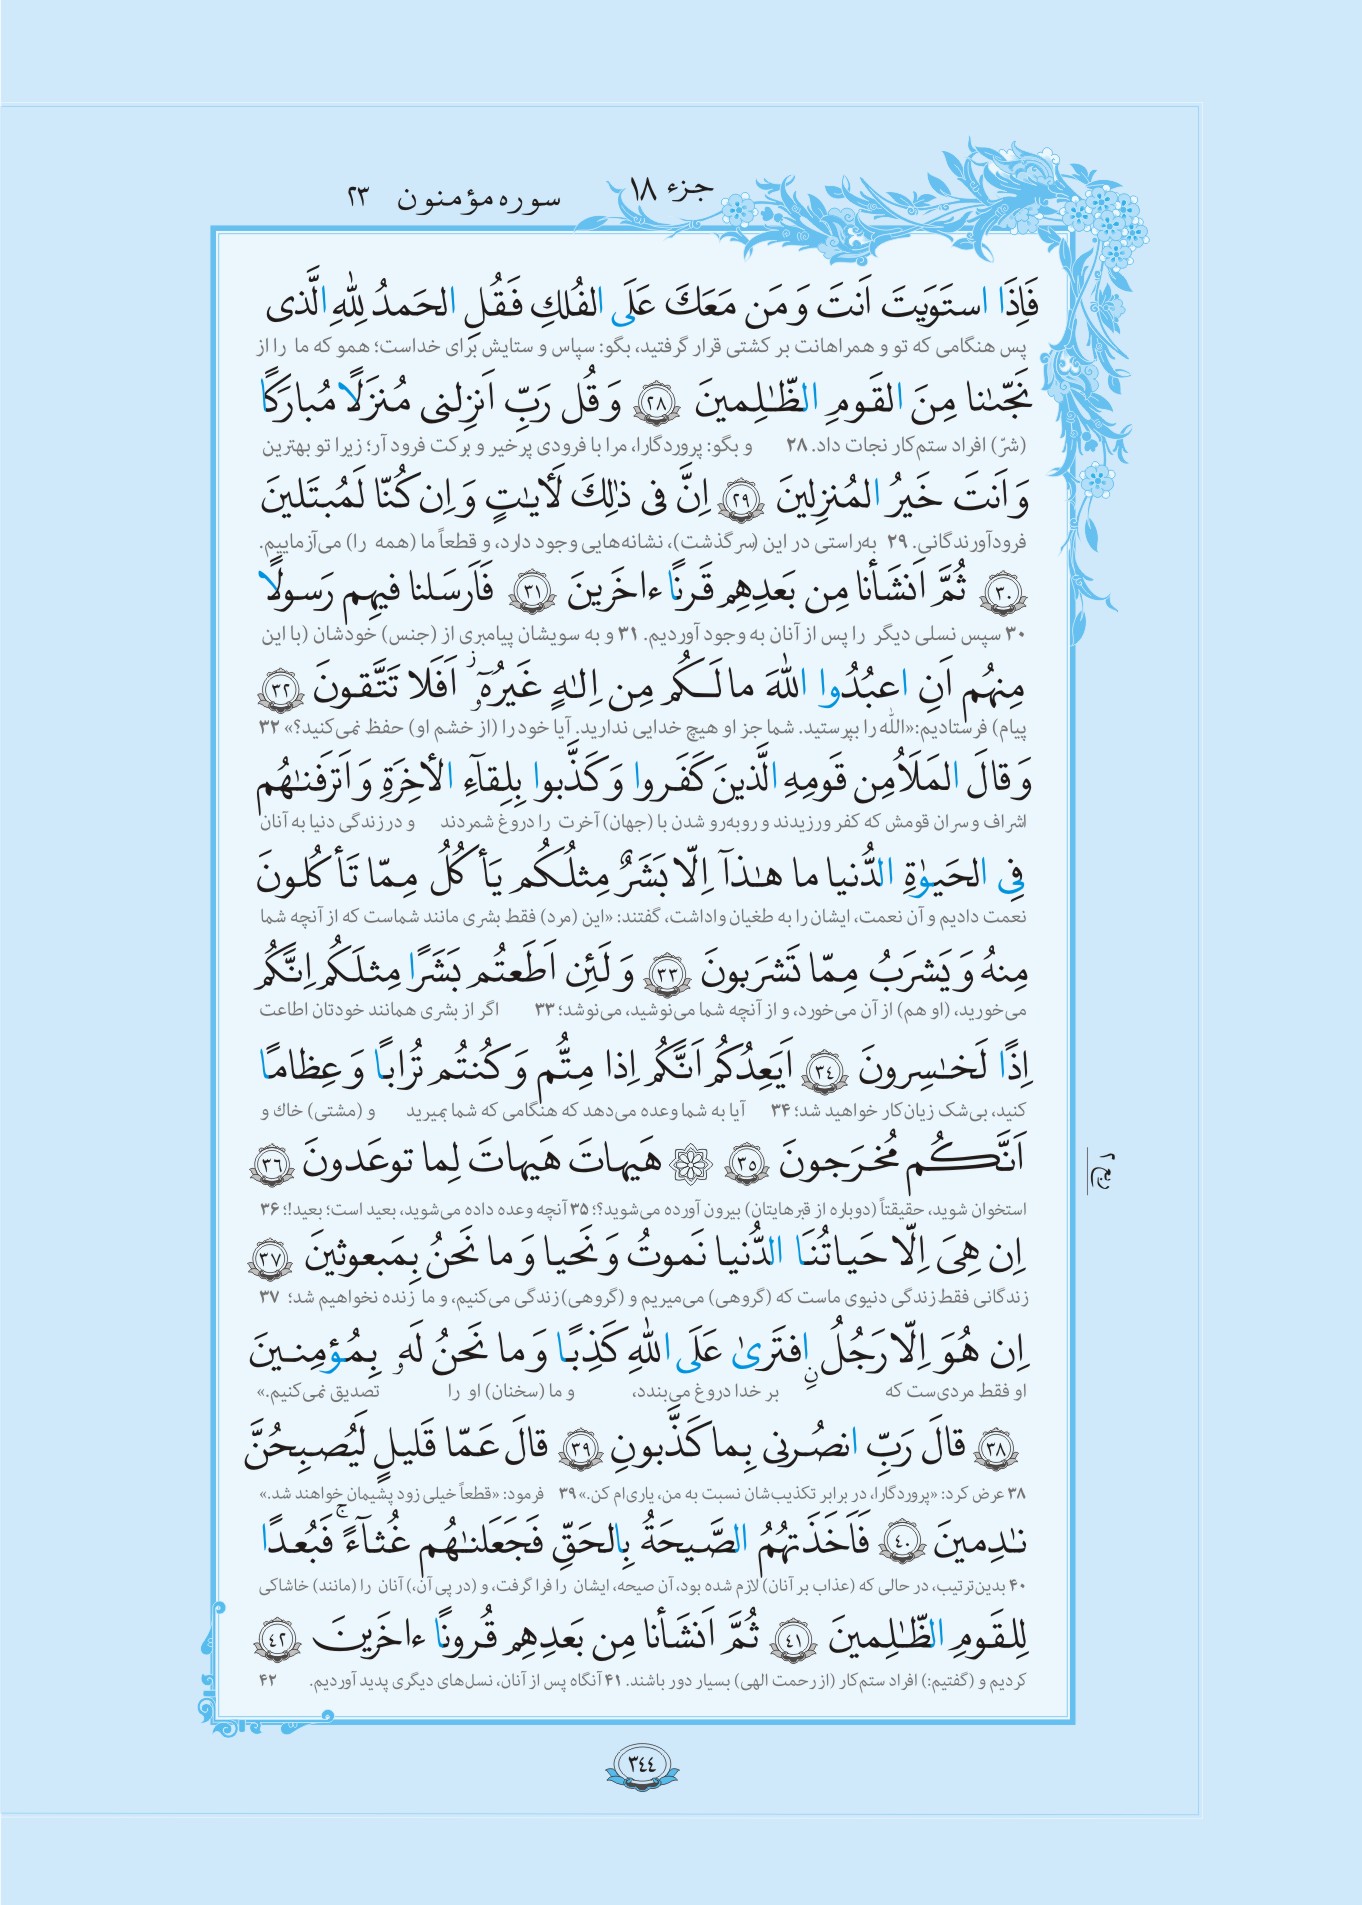 جزء ۱۸
سوره مؤمنون ۲۳
فَاِذَا استَوَيتَ اَنتَ وَ مَن مَعَكَ عَلَى الفُلكِ فَقُلِ الحَمدُ لِلّٰهِ الَّذى
پس هنگامی که تو و همراهانت بر کشتی قرار گرفتید، بگو: سپاس و ستایش برای خداست؛ همو که ما را از
نَجّىٰنا مِنَ القَومِ الظّٰلِمينَ ۲۸ وَ قُل رَبِّ اَنزِلنى مُنزَلًا مُبارَكًا
(شرّ) افراد ستم‌کار نجات داد. ۲۸ و بگو: پروردگارا، مرا با فرودی پرخیر و برکت فرود آر؛ زیرا تو بهترین
وَ اَنتَ خَيرُ المُنزِلينَ ۲۹ اِنَّ فى ذٰلِكَ لَأٰيٰتٍ وَ اِن كُنّا لَمُبتَلينَ
فرودآورندگانی. ۲۹ به‌راستی در این (سرگذشت)، نشانه‌هایی وجود دارد، و قطعاً ما (همه را) می‌آزماییم.
۳۰ ثُمَّ اَنشَأنا مِن بَعدِهِم قَرنًا ءاخَرينَ ۳۱ فَاَرسَلنا فيهِم رَسولًا
۳۰ سپس نسلی دیگر را پس از آنان به وجود آوردیم. ۳۱ و به سویشان پیامبری از (جنس) خودشان (با این
مِنهُم اَنِ اعبُدُوا اللّٰهَ ما لَكُم مِن اِلٰهٍ غَيرُهٓ ز اَفَلا تَتَّقونَ ۳۲
پیام) فرستادیم: «اللّٰه را بپرستید. شما جز او هیچ خدایی ندارید. آیا خود را (از خشم او) حفظ نمی‌کنید؟» ۳۲
وَ قالَ المَلَاُ مِن قَومِهِ الَّذينَ كَفَروا وَ كَذَّبوا بِلِقآءِ الأخِرَةِ وَ اَترَفنٰهُم
اشراف و سران قومش که کفر ورزیدند و روبه‌رو شدن با (جهان) آخرت را دروغ شمردند و در زندگی دنیا به آنان
فِى الحَيوٰةِ الدُّنيا ما هٰذآ اِلّا بَشَرٌ مِثلُكُم يَأكُلُ مِمّا تَأكُلونَ
نعمت دادیم و آن نعمت، ایشان را به طغیان واداشت، گفتند: «این (مرد) فقط بشری مانند شماست که از آنچه شما
مِنهُ وَ يَشرَبُ مِمّا تَشرَبونَ ۳۳ وَ لَئِن اَطَعتُم بَشَرًا مِثلَكُم اِنَّكُم
می‌خورید، (او هم) از آن می‌خورد، و از آنچه شما می‌نوشید، می‌نوشد؛ ۳۳ اگر از بشری همانند خودتان اطاعت
اِذًا لَخٰسِرونَ ۳۴ اَيَعِدُكُم اَنَّكُم اِذا مِتُّم وَ كُنتُم تُرابًا وَ عِظامًا
کنید، بی‌شک زیان‌کار خواهید شد؛ ۳۴ آیا به شما وعده می‌دهد که هنگامی که شما بمیرید و (مشتی) خاك و
اَنَّكُم مُخرَجونَ ۳۵ هَيهاتَ هَيهاتَ لِما توعَدونَ ۳۶
ربع ۲
استخوان شوید، حقیقتاً (دوباره از قبرهایتان) بیرون آورده می‌شوید؟؛ ۳۵ آنچه وعده داده می‌شوید، بعید است؛ بعید!؛ ۳۶
اِن هِىَ اِلّا حَياتُنَا الدُّنيا نَموتُ وَ نَحيا وَ ما نَحنُ بِمَبعوثينَ ۳۷
زندگانی فقط زندگی دنیوی ماست که (گروهی) می‌میریم و (گروهی) زندگی می‌کنیم، و ما زنده نخواهیم شد؛ ۳۷
اِن هُوَ اِلّا رَجُلُ نِ افتَرىٰ عَلَى اللّٰهِ كَذِبًا وَ ما نَحنُ لَهو بِمُؤمِنينَ
او فقط مردی‌ست که بر خدا دروغ می‌بندد، و ما (سخنان) او را تصدیق نمی‌کنیم.»
۳۸ قالَ رَبِّ انصُرنى بِما كَذَّبونِ ۳۹ قالَ عَمّا قَليلٍ لَيُصبِحُنَّ
۳۸ عرض کرد: «پروردگارا، در برابر تکذیب‌شان نسبت به من، یاری‌ام کن.» ۳۹ فرمود: «قطعاً خیلی زود پشیمان خواهند شد.»
نٰدِمينَ ۴۰ فَاَخَذَتهُمُ الصَّيحَةُ بِالحَقِّ فَجَعَلنٰهُم غُثآءً ج فَبُعدًا
۴۰ بدین‌ترتیب، در حالی که (عذاب بر آنان) لازم شده بود، آن صیحه، ایشان را فرا گرفت، و (در پی آن،) آنان را (مانند) خاشاکی
لِلقَومِ الظّٰلِمينَ ۴۱ ثُمَّ اَنشَأنا مِن بَعدِهِم قُرونًا ءاخَرينَ ۴۲
کردیم و (گفتیم:) افراد ستم‌کار (از رحمت الهی) بسیار دور باشند. ۴۱ آنگاه پس از آنان، نسل‌های دیگری پدید آوردیم. ۴۲
۳۴۴